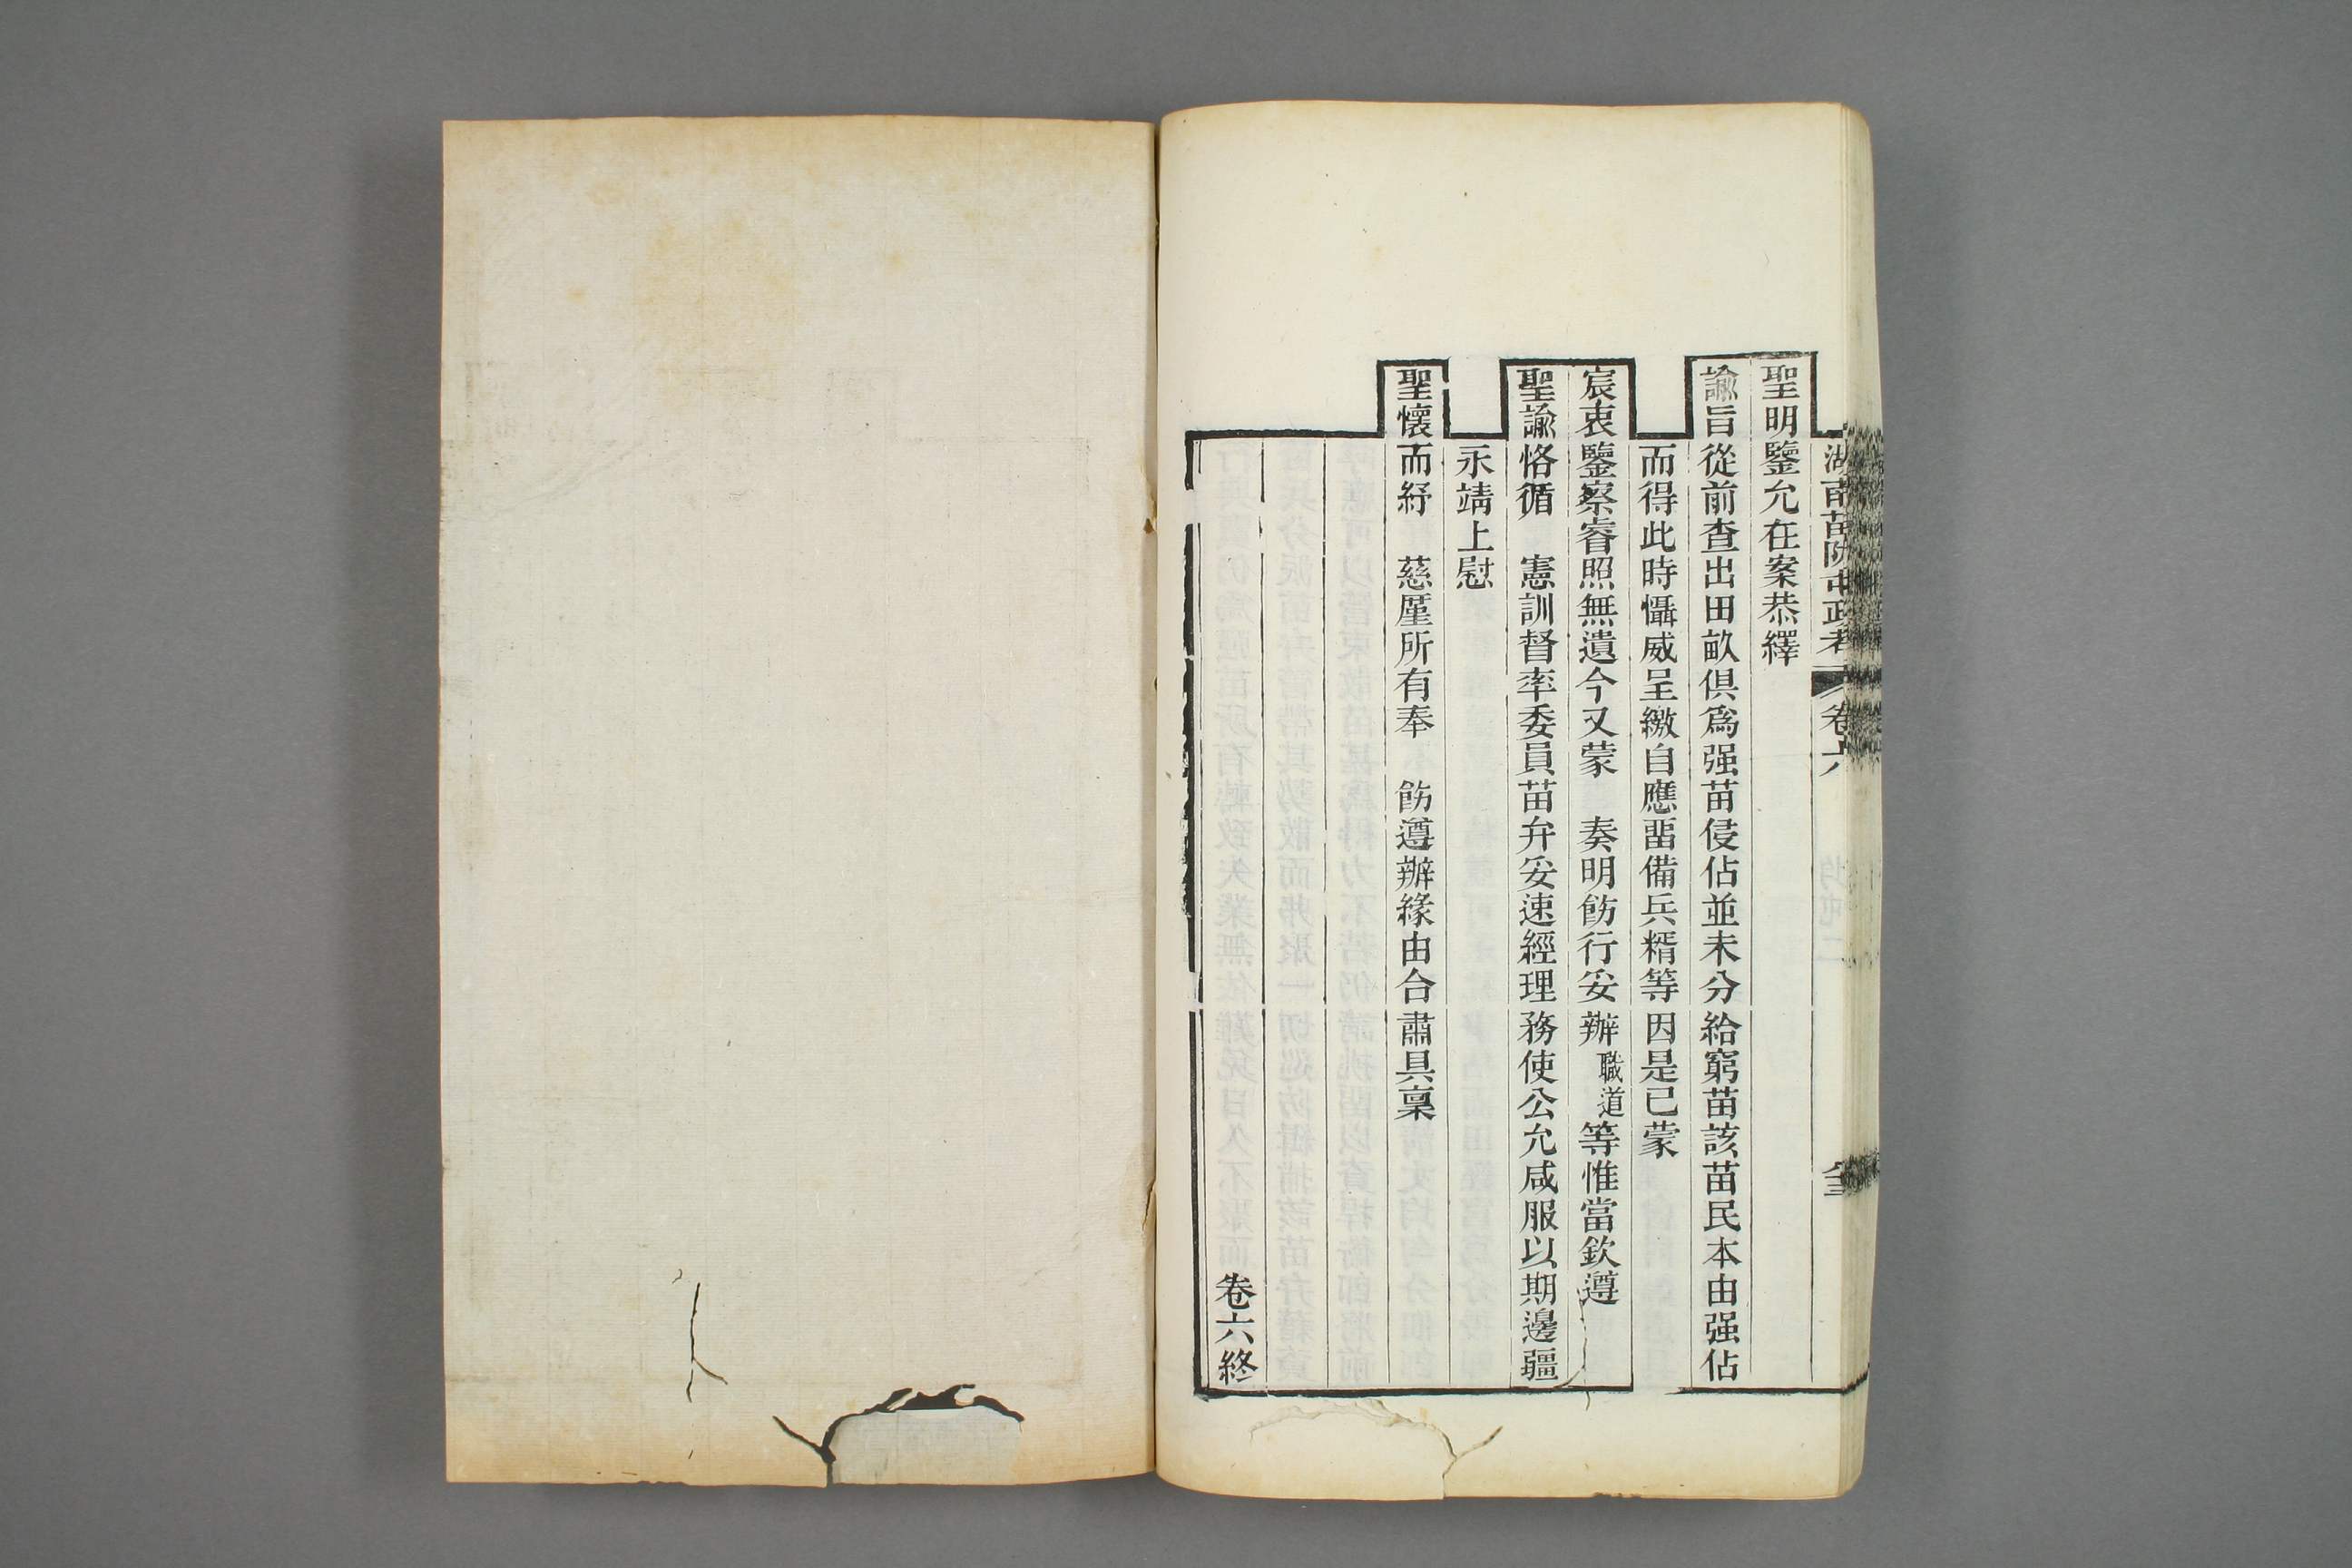 湖南苗防屯政考 卷六 八三
聖明鑒允在案恭繹
諭旨從前查出田畝俱爲强苗侵佔並未分給窮苗該苗民本由强佔
而得此時懾威呈繳自應畱備兵糈等因是已蒙
宸衷鑒察睿照無遺今又蒙 奏明飭行妥辦職道等惟當欽遵
聖諭恪循 憲訓督率委員苗弁妥速經理務使公允咸服以期邊疆
永靖上慰
聖懷而紓 慈厪所有奉 飭遵辦緣由合肅具稟
卷六終